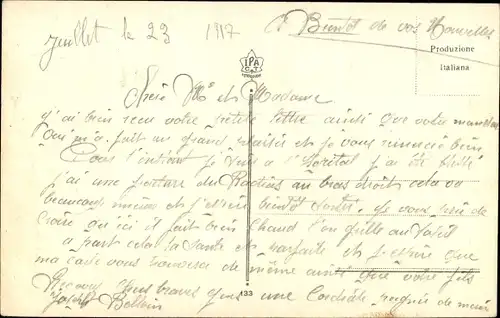 Juillet le 23 1917
A Bientôt de vos Nouvelles
Produzione
Italiana
IPA
C T
Cher Mr et Madame
j'ai bien reçu votre petite lettre ainsi que votre
qui m'a fait un grand plaisir et je vous remercie bien
Pour l'instant je suis a l'Hopital j'ai été
j'ai une du Radius au bras droit cela va
beaucoup mieux et j'espère bientôt sortir je vous prie de
croire qu'ici il fait bien Chaud l'on grille au soleil
a part cela la Santé est parfaite et j'espère que
ma carte vous trouvera de même ainsi que votre fils
Recevez chers braves gens une Cordiale poignée de main
Joseph
133